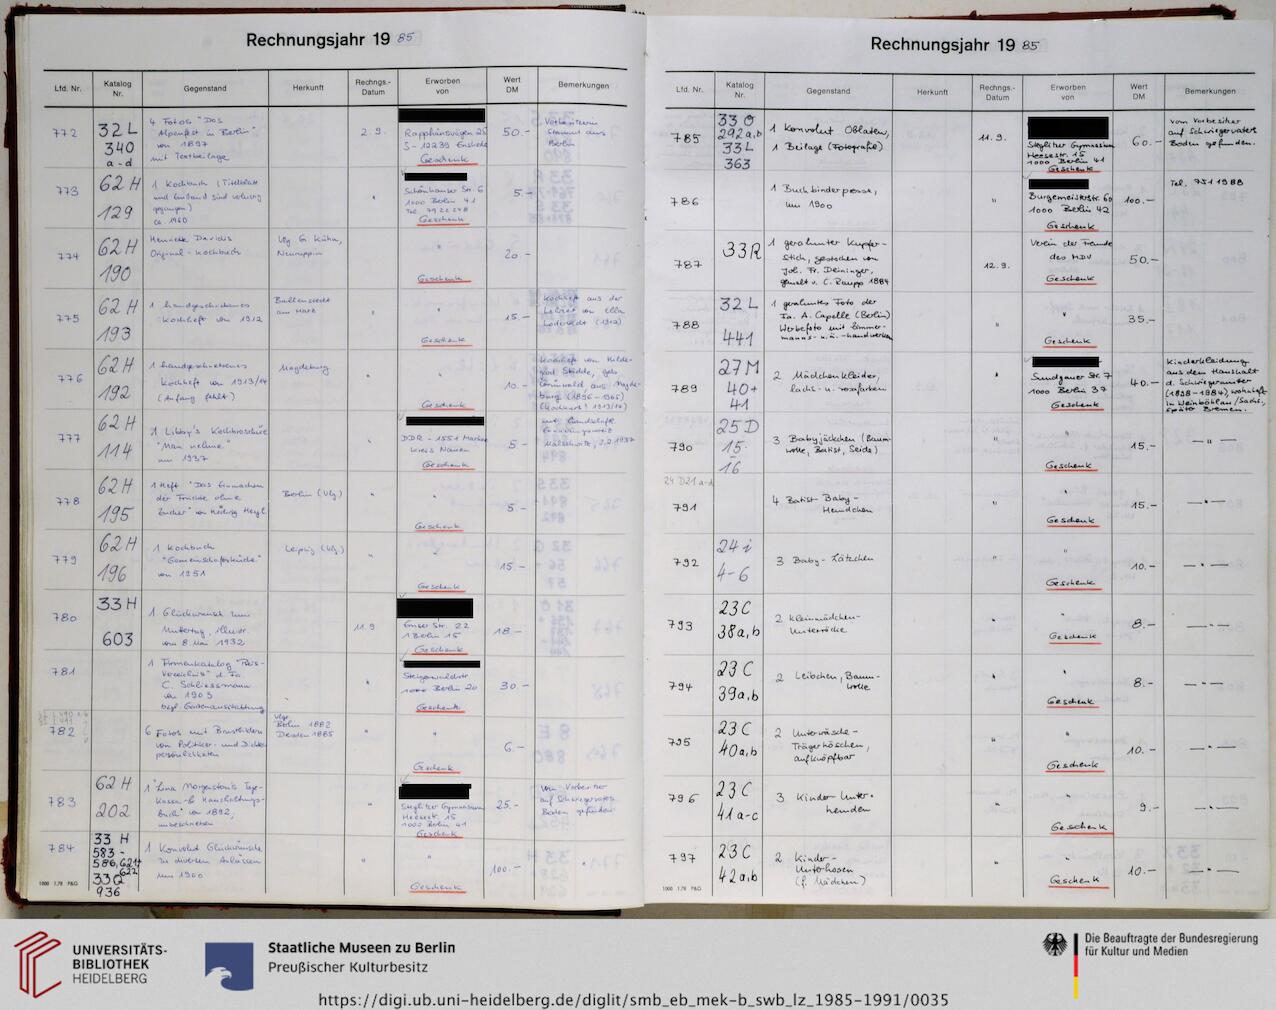 Rechnungsjahr 19 85
Lfd. Nr.
Katalog Nr.
Gegenstand
Herkunft
Rechngs.-Datum
Erworben von
Wert DM
Bemerkungen
772
32 L
340
a-d
4 Fotos "Das
Alpenfest in Berlin"
von 1897
mit Textbeilage
2. 9.
S - 12239 Enskede
Geschenk
50.-
Vorbesitzerin
stammt aus
Berlin
773
62 H
129
1 Kochbuch (Titelblatt
und Einband sind
ca. 1960
Schönhauser Str. 6
1000 Berlin 41
Tel. 7922248
Geschenk
5.-
774
62 H
190
Henriette Davidis
Original-Kochbuch
Vlg. G. Kühn,
Neuruppin
Geschenk
20.-
775
62 H
193
1 handgeschriebenes
Kochheft von 1912
Ballenstedt
am Harz
Geschenk
15.-
Kochheft aus der
776
62 H
192
1 handgeschriebenes
Kochheft von 1913/14
(Anfang fehlt)
Magdeburg
Geschenk
10.-
Kochheft von Hilde-
burg (1896-1965)
777
62 H
114
1 Libby's Kochbroschüre
"Man nehme"
um 1937
DDR - 1551
Kreis Nauen
Geschenk
5.-
778
62 H
195
1 Heft "Das Einmachen
der Früchte ohne
Zucker" von Hedwig Heyl
Berlin (Vlg.)
Geschenk
5.-
779
62 H
196
1 Kochbuch
"Gemeinschaftsküche"
von 1951
Leipzig (Vlg.)
Geschenk
15.-
780
33 H
603
1 Glückwunsch zum
Muttertag, illustr.
vom 8. Mai 1932
11.9
Emser Str. 22
1 Berlin 15
Geschenk
18.-
781
1 Firmenkatalog "Preis-
Verzeichnis" d. Fa.
C. Schliessmann
von 1903
bzgl. Gartenausstattung
Steigerwaldstr.
1000 Berlin 20
Geschenk
30.-
782
6 Fotos mit Brustbildern
von Politiker- und Dichter-
persönlichkeiten
Vlge.
Berlin 1882
Dresden 1885
Geschenk
6.-
783
62 H
202
1 "Lina Morgenstern's Tage-
Kassa- & Haushaltungs-
buch" von 1892,
unbeschrieben
Steglitzer Gymnasium
Heesestr. 15
1000 Berlin 41
Geschenk
25.-
vom Vorbesitzer
auf Schwiegervaters
Boden gefunden
784
33 H
583-
586, 621+
622
33 Q
936
1 Konvolut Glückwünsche
zu diversen Anlässen
um 1900
Geschenk
100.-
1000 1.78 P&G
Rechnungsjahr 19 85
Lfd. Nr.
Katalog Nr.
Gegenstand
Herkunft
Rechngs.-Datum
Erworben von
Wert DM
Bemerkungen
785
33 O
292 a,b
33 L
363
1 Konvolut Oblaten,
1 Beilage (Fotografie)
11. 9.
Steglitzer Gymnasium
Heesestr. 15
1000 Berlin 41
Geschenk
60.-
vom Vorbesitzer
auf Schwiegervaters
Boden gefunden.
786
1 Buchbinderpresse,
um 1900
"
Burgemeisterstr. 60
1000 Berlin 42
Geschenk
100.-
Tel. 7511988
787
33 R
1 gerahmter Kupfer-
stich, gestochen von
Joh. Fr. Deininger,
gemalt v. C. Raupp 1884
12. 9.
Verein der Freunde
des MDV
Geschenk
50.-
788
32 L
441
1 gerahmtes Foto der
Fa. A. Capelle (Berlin)
Werbefoto mit Zimmer-
manns- u.a.-handwerkern
"
Geschenk
35.-
789
27 M
40+
41
2 Mädchenkleider,
lachs- u. rosafarben
"
Sundgauer Str. 7
1000 Berlin 37
Geschenk
40.-
Kinderkleidung
aus dem Haushalt
d. Schwiegermutter
(1898-1984), wohnhaft
in Weinböhla/Sachs.,
später Bremen.
790
25 D
15-
16
3 Babyjäckchen (Baum-
wolle, Batist, Seide)
"
Geschenk
15.-
- " -
24 D21 a-d
791
4 Batist-Baby-
Hemdchen
"
Geschenk
15.-
- " -
792
24 i
4-6
3 Baby-Lätzchen
"
Geschenk
10.-
- " -
793
23 C
38 a,b
2 Kleinmädchen-
Unterröcke
"
Geschenk
8.-
- " -
794
23 C
39 a,b
2 Leibchen, Baum-
wolle
"
Geschenk
8.-
- " -
795
23 C
40 a,b
2 Unterwäsche-
Trägerhöschen,
aufknöpfbar
"
Geschenk
10.-
- " -
796
23 C
41 a-c
3 Kinder-Unter-
hemden
"
Geschenk
9.-
- " -
797
23 C
42 a,b
2 Kinder-
Unterhosen
(f. Mädchen)
"
Geschenk
10.-
- " -
1000 1.78 P&G
UNIVERSITÄTS-
BIBLIOTHEK
HEIDELBERG
Staatliche Museen zu Berlin
Preußischer Kulturbesitz
Die Beauftragte der Bundesregierung
für Kultur und Medien
https://digi.ub.uni-heidelberg.de/diglit/smb_eb_mek-b_swb_lz_1985-1991/0035